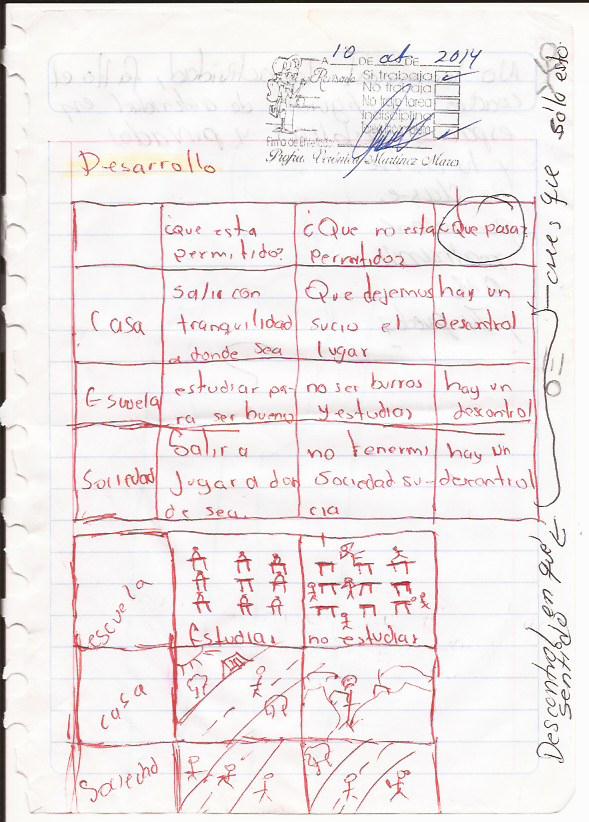 A 10 DE oct DE 2014
Revisado
Si trabaja
No trabaja
No trajo tarea
Indisciplina
Firma de Enterado
Profra. Verónica Martínez Mares
Desarrollo
¿que esta permitido?
¿Que no esta permitido?
¿Que pasa?
Casa
Salir con
tranquilidad
a donde sea
Que dejemos
sucio el
lugar
hay un
descontrol
Escuela
estudiar pa-
ra ser bueno
no ser burros
y estudiar
hay un
descontrol
Sociedad
Salir a
jugar a don
de sea.
no tener mi
Sociedad su-
cia
hay un
descontrol
escuela
Estudiar
no estudiar
casa
Sociedad
Descontrol en que
sentido
que
solo esto